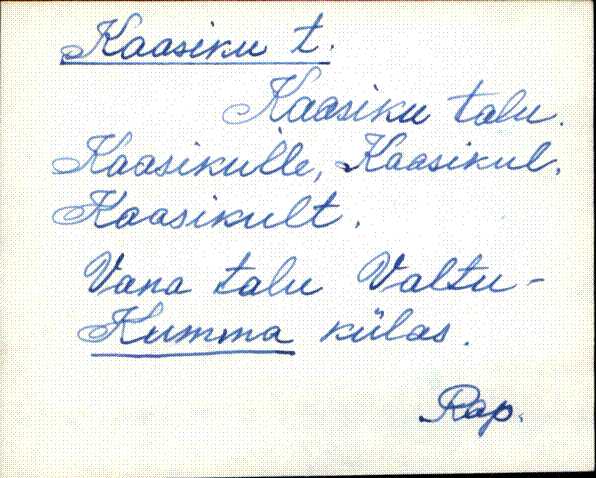 Kaasiku t.
Kaasiku talu.
Kaasikulle, Kaasikul,
Kaasikult.
Vana talu Valtu-
Kumma külas.
Rap.